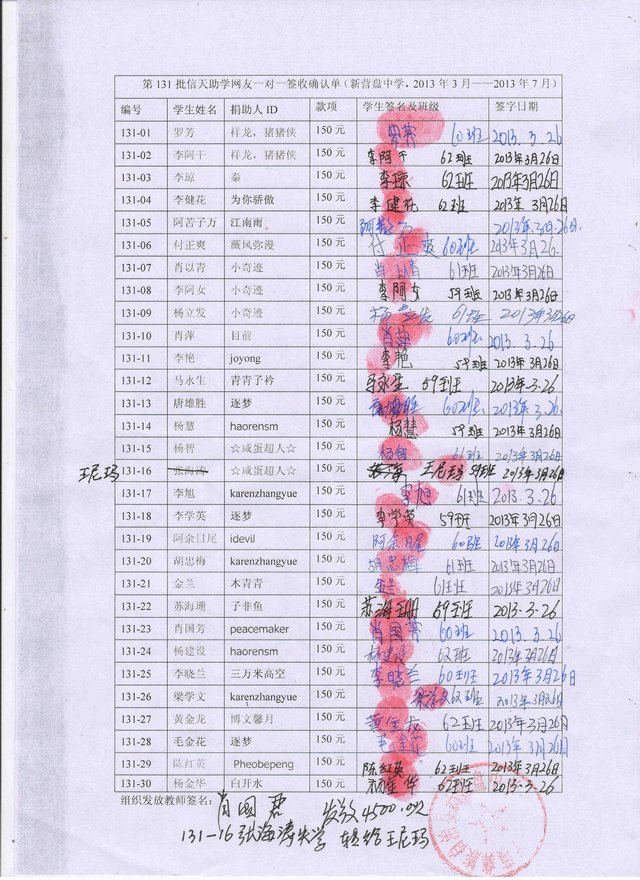 第 131 批信天助学网友一对一签收确认单（新营盘中学，2013 年 3 月——2013 年 7 月）
编号 学生姓名 捐助人 ID 款项 学生签名及班级 签字日期
131-01 罗芳 祥龙，猪猪侠 150 元 罗芳 60班 2013.3.26
131-02 李阿干 祥龙，猪猪侠 150 元 李阿干 62班 2013年3月26日
131-03 李琼 秦 150 元 李琼 62班 2013年3月26日
131-04 李健花 为你骄傲 150 元 李健花 62班 2013年3月26日
131-05 阿苦子万 江南雨 150 元 2013年3月26日
131-06 付正爽 薇风弥漫 150 元 付正爽 60班 2013年3月26
131-07 肖以青 小奇迹 150 元 肖以青 61班 2013年3月26日
131-08 李阿女 小奇迹 150 元 李阿女 59班 2013年3月26日
131-09 杨立发 小奇迹 150 元 杨立发 61班 2013年3月26日
131-10 肖萍 目前 150 元 肖萍 60班 2013.3.26
131-11 李艳 joyong 150 元 李艳 59班 2013年3月26日
131-12 马永生 青青子衿 150 元 马永生 59班 2013年.3.26
131-13 唐雄胜 逐梦 150 元 唐雄胜 60班 2013年.3.26
131-14 杨慧 haorensm 150 元 杨慧 59班 2013年3月26日
131-15 杨智 ☆咸蛋超人☆ 150 元 杨智 2013年3月26日
王尼玛 131-16 张海涛 ☆咸蛋超人☆ 150 元 张海 王尼玛 59班 2013年3月26日
131-17 李旭 karenzhangyue 150 元 李旭 61班 2013.3.26
131-18 李学英 逐梦 150 元 李学英 59班 2013年3月26日
131-19 阿余日尾 idevil 150 元 阿余日尾 60班 2013年3月26日
131-20 胡忠梅 karenzhangyue 150 元 胡忠梅 61班 2013年3月26日
131-21 金兰 木青青 150 元 金兰 61班 2013年3月26日
131-22 苏海珊 子非鱼 150 元 苏海珊 59班 2013.3.26
131-23 肖国芳 peacemaker 150 元 肖国芳 60班 2013.3.26
131-24 杨建设 haorensm 150 元 杨建设 62班 2013年3月26日
131-25 李晓兰 三万米高空 150 元 李晓兰 60班 2013年3月26日
131-26 梁学文 karenzhangyue 150 元 梁学文 62班 2013年3月26日
131-27 黄金龙 博文馨月 150 元 黄金龙 62班 2013年3月26日
131-28 毛金花 逐梦 150 元 毛金花 60班 2013年3月26日
131-29 陈红英 Pheobepeng 150 元 陈红英 62班 2013年3月26日
131-30 杨金华 白开水 150 元 杨金华 62班 2013.3.26
组织发放教师签名： 肖国君 发放4500.00元
131-16张海涛失学 转给王尼玛